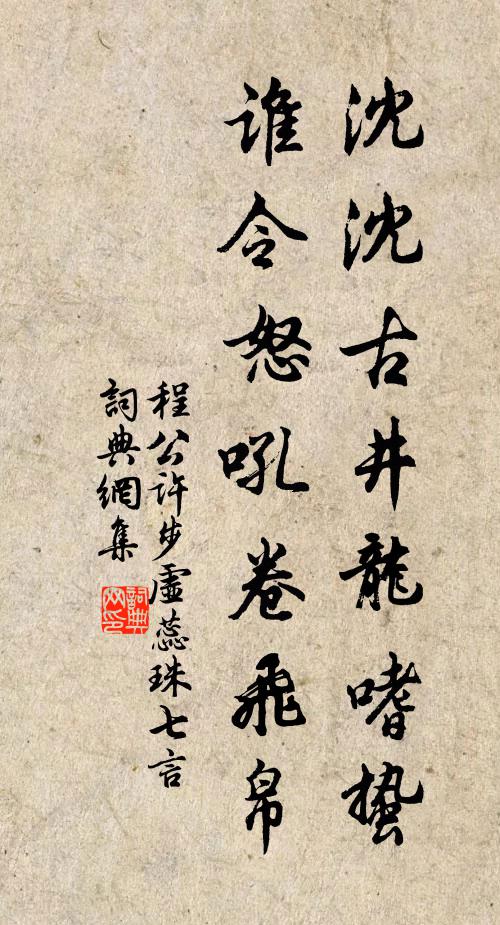 沈沈古井龍嗜蟄
誰令怒吼卷飛帛
程公許步虛蕊珠七言
詞典網集
詞典网印